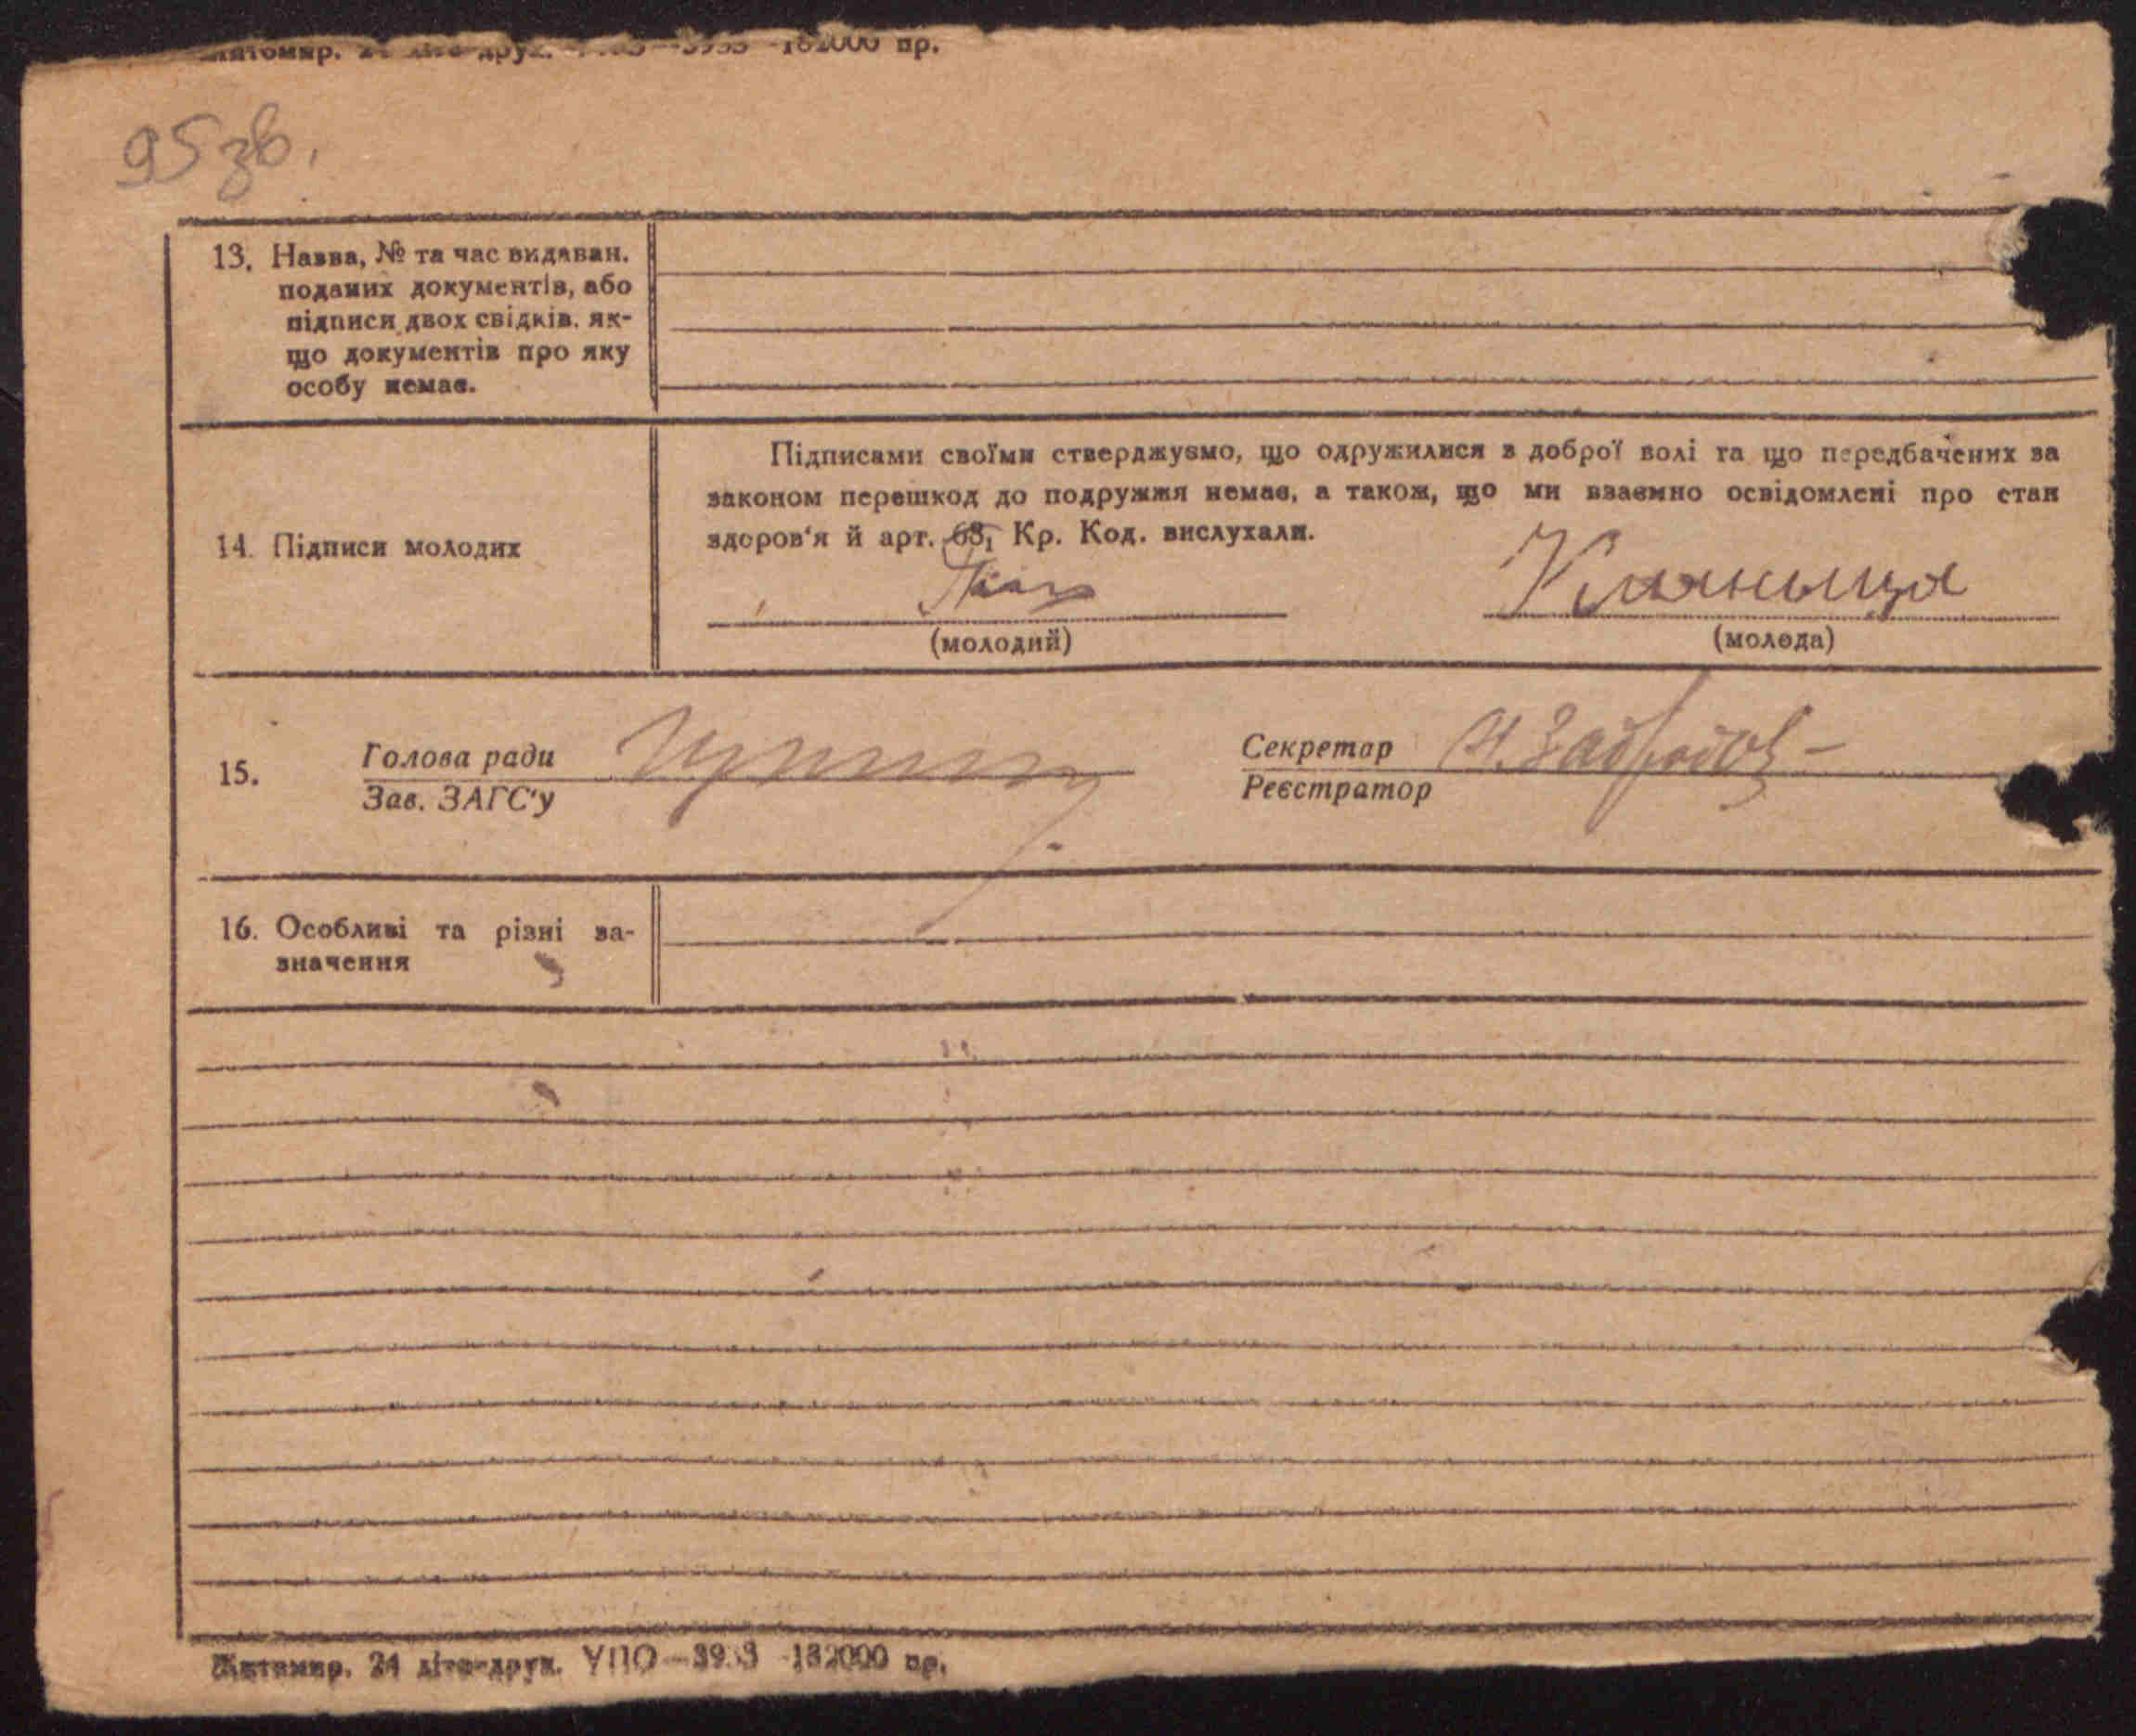 95 зв.
13. Назва, № та час видаван.
поданих документів, або
підписи двох свідків, як-
що документів про яку
особу немає.
Підписами своїми стверджуємо, що одружилися з доброї волі та що передбачених за
законом перешкод до подружжя немає, а також, що ми взаємно освідомлені про стан
здоров'я й арт. Кр. Код. вислухали.
14. Підписи молодих
(молодий)
(молода)
15. Голова ради
Зав. ЗАГС'у
Секретар
Реєстратор
16. Особливі та різні за-
значення
Житомир. 24 літо-друк. УПО 132000 пр.